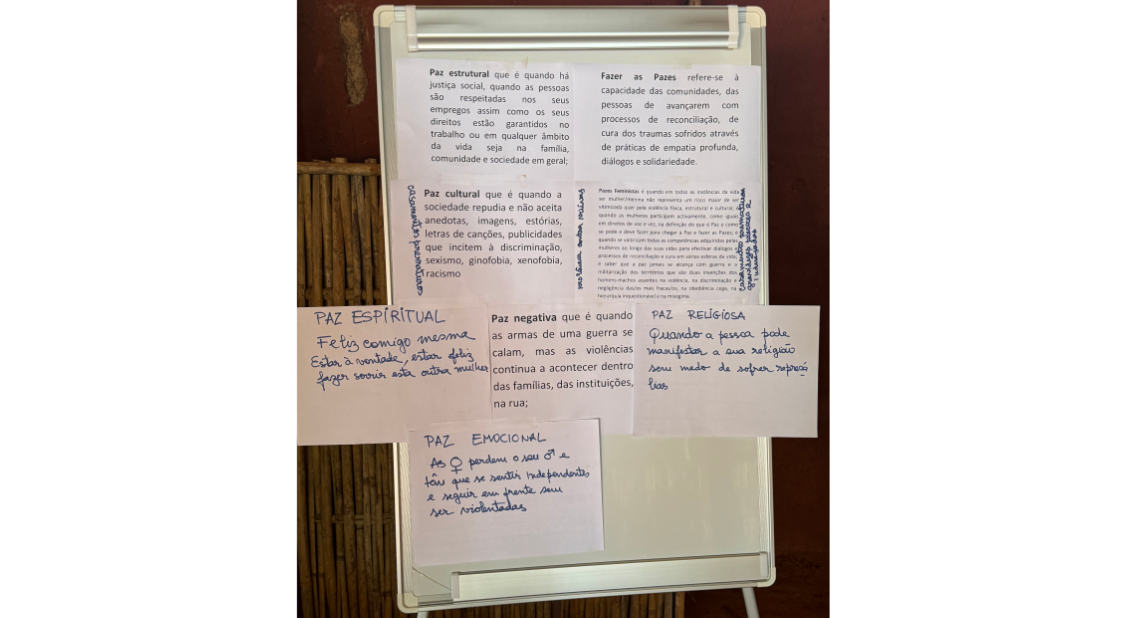 Paz estrutural que é quando há
justiça social, quando as pessoas
são respeitadas nos seus
empregos assim como os seus
direitos estão garantidos no
trabalho ou em qualquer âmbito
da vida seja na família,
comunidade e sociedade em geral;
Fazer as Pazes refere-se à
capacidade das comunidades, das
pessoas de avançarem com
processos de reconciliação, de
cura dos traumas sofridos através
de práticas de empatia profunda,
diálogos e solidariedade.
casamentos prematuros
Paz cultural que é quando a
sociedade repudia e não aceita
anedotas, imagens, estórias,
letras de canções, publicidades
que incitem à discriminação,
sexismo, ginofobia, xenofobia,
racismo
Pazes Feministas é quando em todas as instâncias da vida
ser mulher/menina não representa um risco maior de ser
vitimizada quer pela violência física, estrutural e cultural;
quando as mulheres participam activamente, como iguais
em direitos de voz e vez, na definição do que é Paz e como
se pode e deve fazer para chegar à Paz e fazer as Pazes;
quando se valorizam todas as competências adquiridas pelas
mulheres ao longo das suas vidas para efectivar diálogos e
processos de reconciliação e cura em várias esferas da vida;
é saber que a paz jamais se alcança com guerra e a
militarização dos territórios que são duas invenções dos
homens-machos assentes na violência, na discriminação e
negligência das/os mais fracas/os, na obediência cega, na
hierarquia inquestionável e na misoginia.
casamentos prematuros
PAZ ESPIRITUAL
Feliz comigo mesma
Estar à vontade, estar feliz
fazer sorrir esta outra mulher
Paz negativa que é quando
as armas de uma guerra se
calam, mas as violências
continua a acontecer dentro
das famílias, das instituições,
na rua;
PAZ RELIGIOSA
Quando a pessoa pode
manifestar a sua religião
sem medo de sofrer represá
lias
PAZ EMOCIONAL
As ♀ perdem o seu ♂ e
têm que se sentir independentes
e seguir em frente sem
ser violentadas